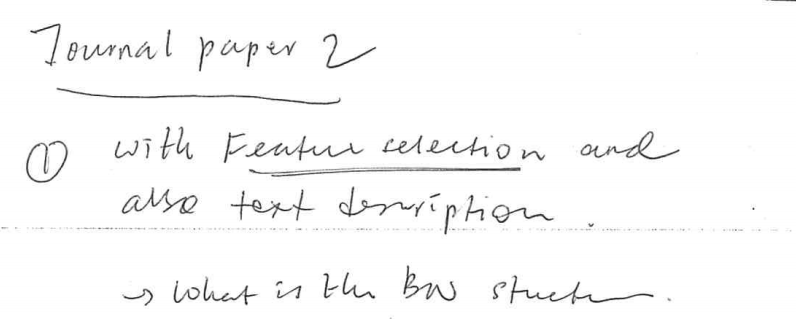 Journal paper 2
① with Feature selection and
also text description.
→ What is the BN structure.